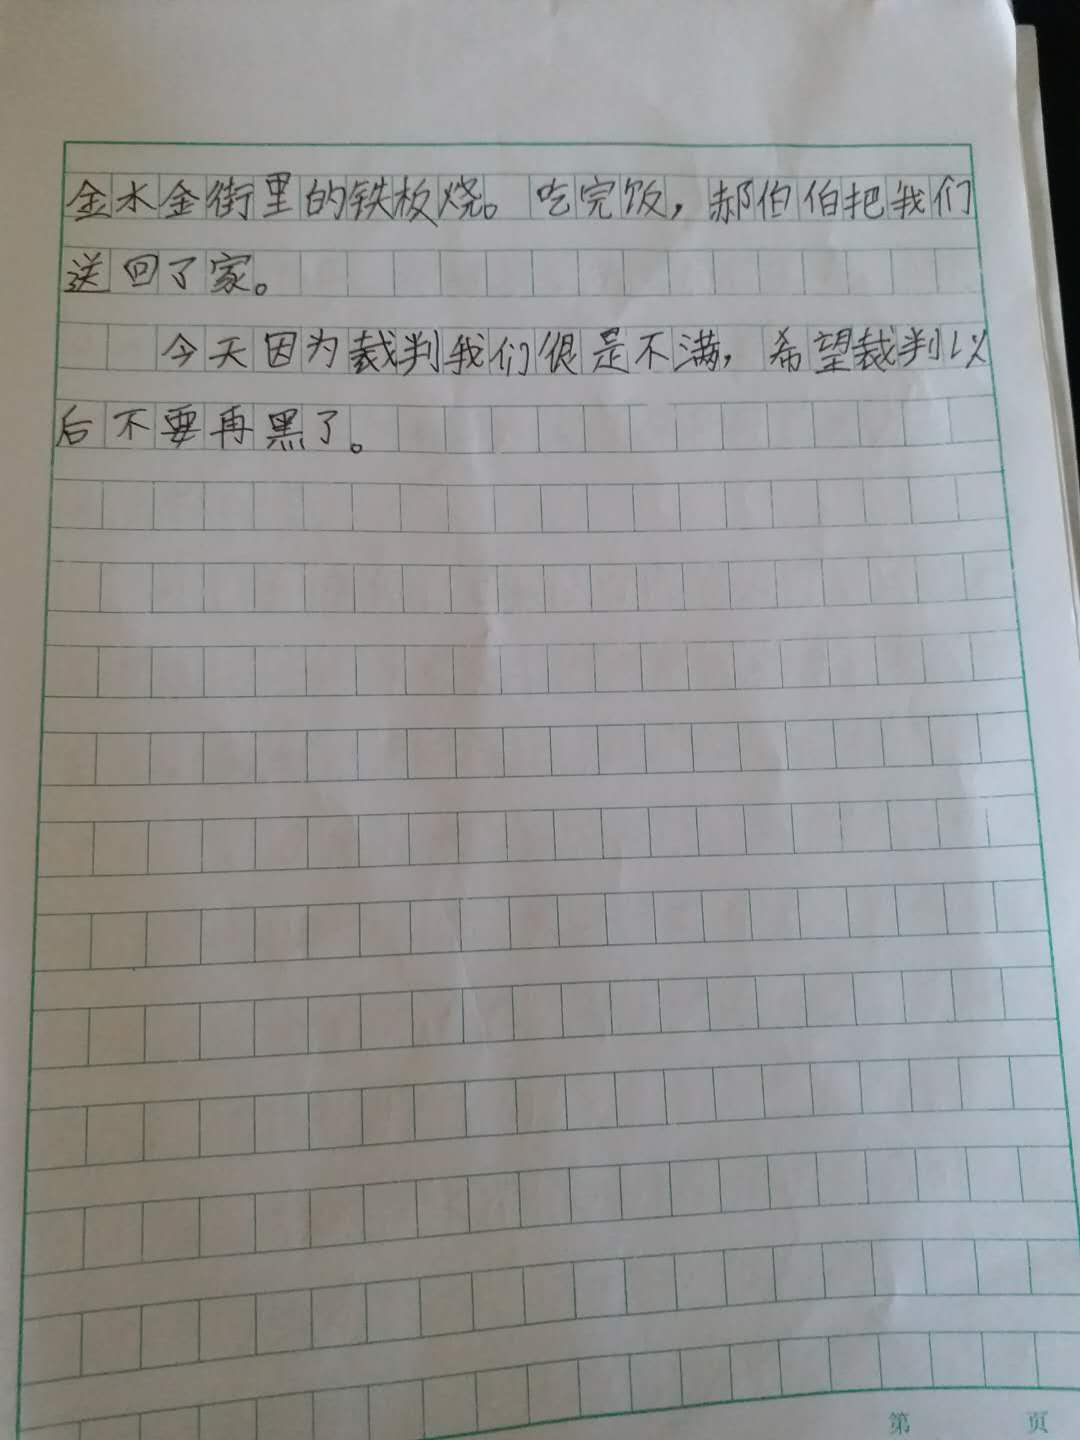 金水金街里的铁板烧。吃完饭，郝伯伯把我们
送回了家。
今天因为裁判我们很是不满，希望裁判以
后不要再黑了。
第 页